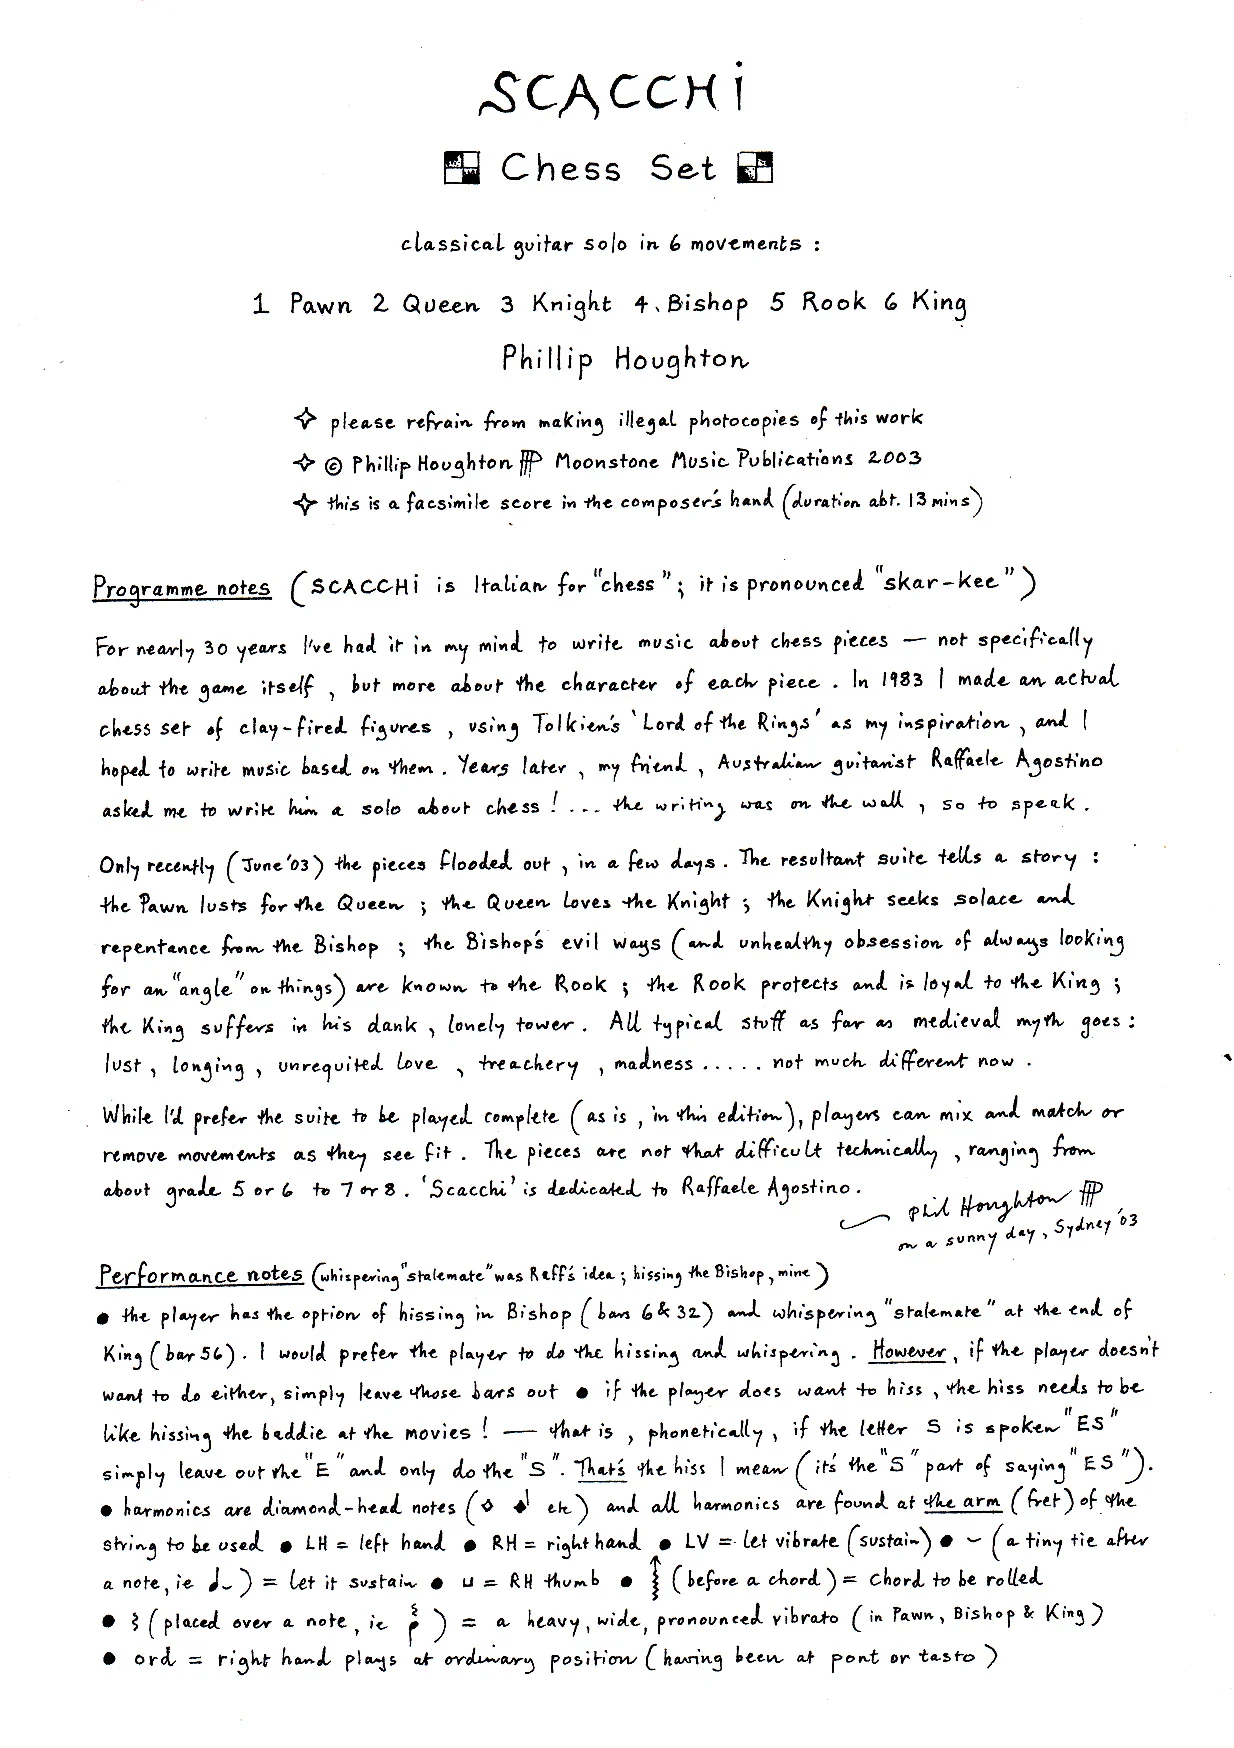 SCACCHi
Chess Set
classical guitar solo in 6 movements :
1 Pawn 2 Queen 3 Knight 4. Bishop 5 Rook 6 King
Phillip Houghton
✧ please refrain from making illegal photocopies of this work
✧ © Phillip Houghton Moonstone Music Publications 2003
✧ this is a facsimile score in the composer's hand (duration abt. 13 mins)
Programme notes (SCACCHi is Italian for "chess"; it is pronounced "skar-kee")
For nearly 30 years I've had it in my mind to write music about chess pieces — not specifically
about the game itself, but more about the character of each piece. In 1983 I made an actual
chess set of clay-fired figures, using Tolkien's 'Lord of the Rings' as my inspiration, and I
hoped to write music based on them. Years later, my friend, Australian guitarist Raffaele Agostino
asked me to write him a solo about chess!... the writing was on the wall, so to speak.
Only recently (June '03) the pieces flooded out, in a few days. The resultant suite tells a story:
the Pawn lusts for the Queen; the Queen loves the Knight; the Knight seeks solace and
repentance from the Bishop; the Bishop's evil ways (and unhealthy obsession of always looking
for an "angle" on things) are known to the Rook; the Rook protects and is loyal to the King;
the King suffers in his dank, lonely tower. All typical stuff as far as medieval myth goes:
lust, longing, unrequited love, treachery, madness..... not much different now.
While I'd prefer the suite to be played complete (as is, in this edition), players can mix and match or
remove movements as they see fit. The pieces are not that difficult technically, ranging from
about grade 5 or 6 to 7 or 8. 'Scacchi' is dedicated to Raffaele Agostino.
Phil Houghton
on a sunny day, Sydney '03
Performance notes (whispering "stalemate" was Raff's idea; hissing the Bishop, mine)
● the player has the option of hissing in Bishop (bars 6 & 32) and whispering "stalemate" at the end of
King (bar 56). I would prefer the player to do the hissing and whispering. However, if the player doesn't
want to do either, simply leave those bars out ● if the player does want to hiss, the hiss needs to be
like hissing the baddie at the movies! — that is, phonetically, if the letter S is spoken "ES"
simply leave out the "E" and only do the "S". That's the hiss I mean (it's the "S" part of saying "ES").
● harmonics are diamond-head notes ( etc) and all harmonics are found at the arm (fret) of the
string to be used ● LH = left hand ● RH = right hand ● LV = let vibrate (sustain) ● ⌣ (a tiny tie after
a note, ie ) = let it sustain ● u = RH thumb ● (before a chord) = chord to be rolled
● (placed over a note, ie ) = a heavy, wide, pronounced vibrato (in Pawn, Bishop & King)
● ord = right hand plays at ordinary position (having been at pont or tasto)